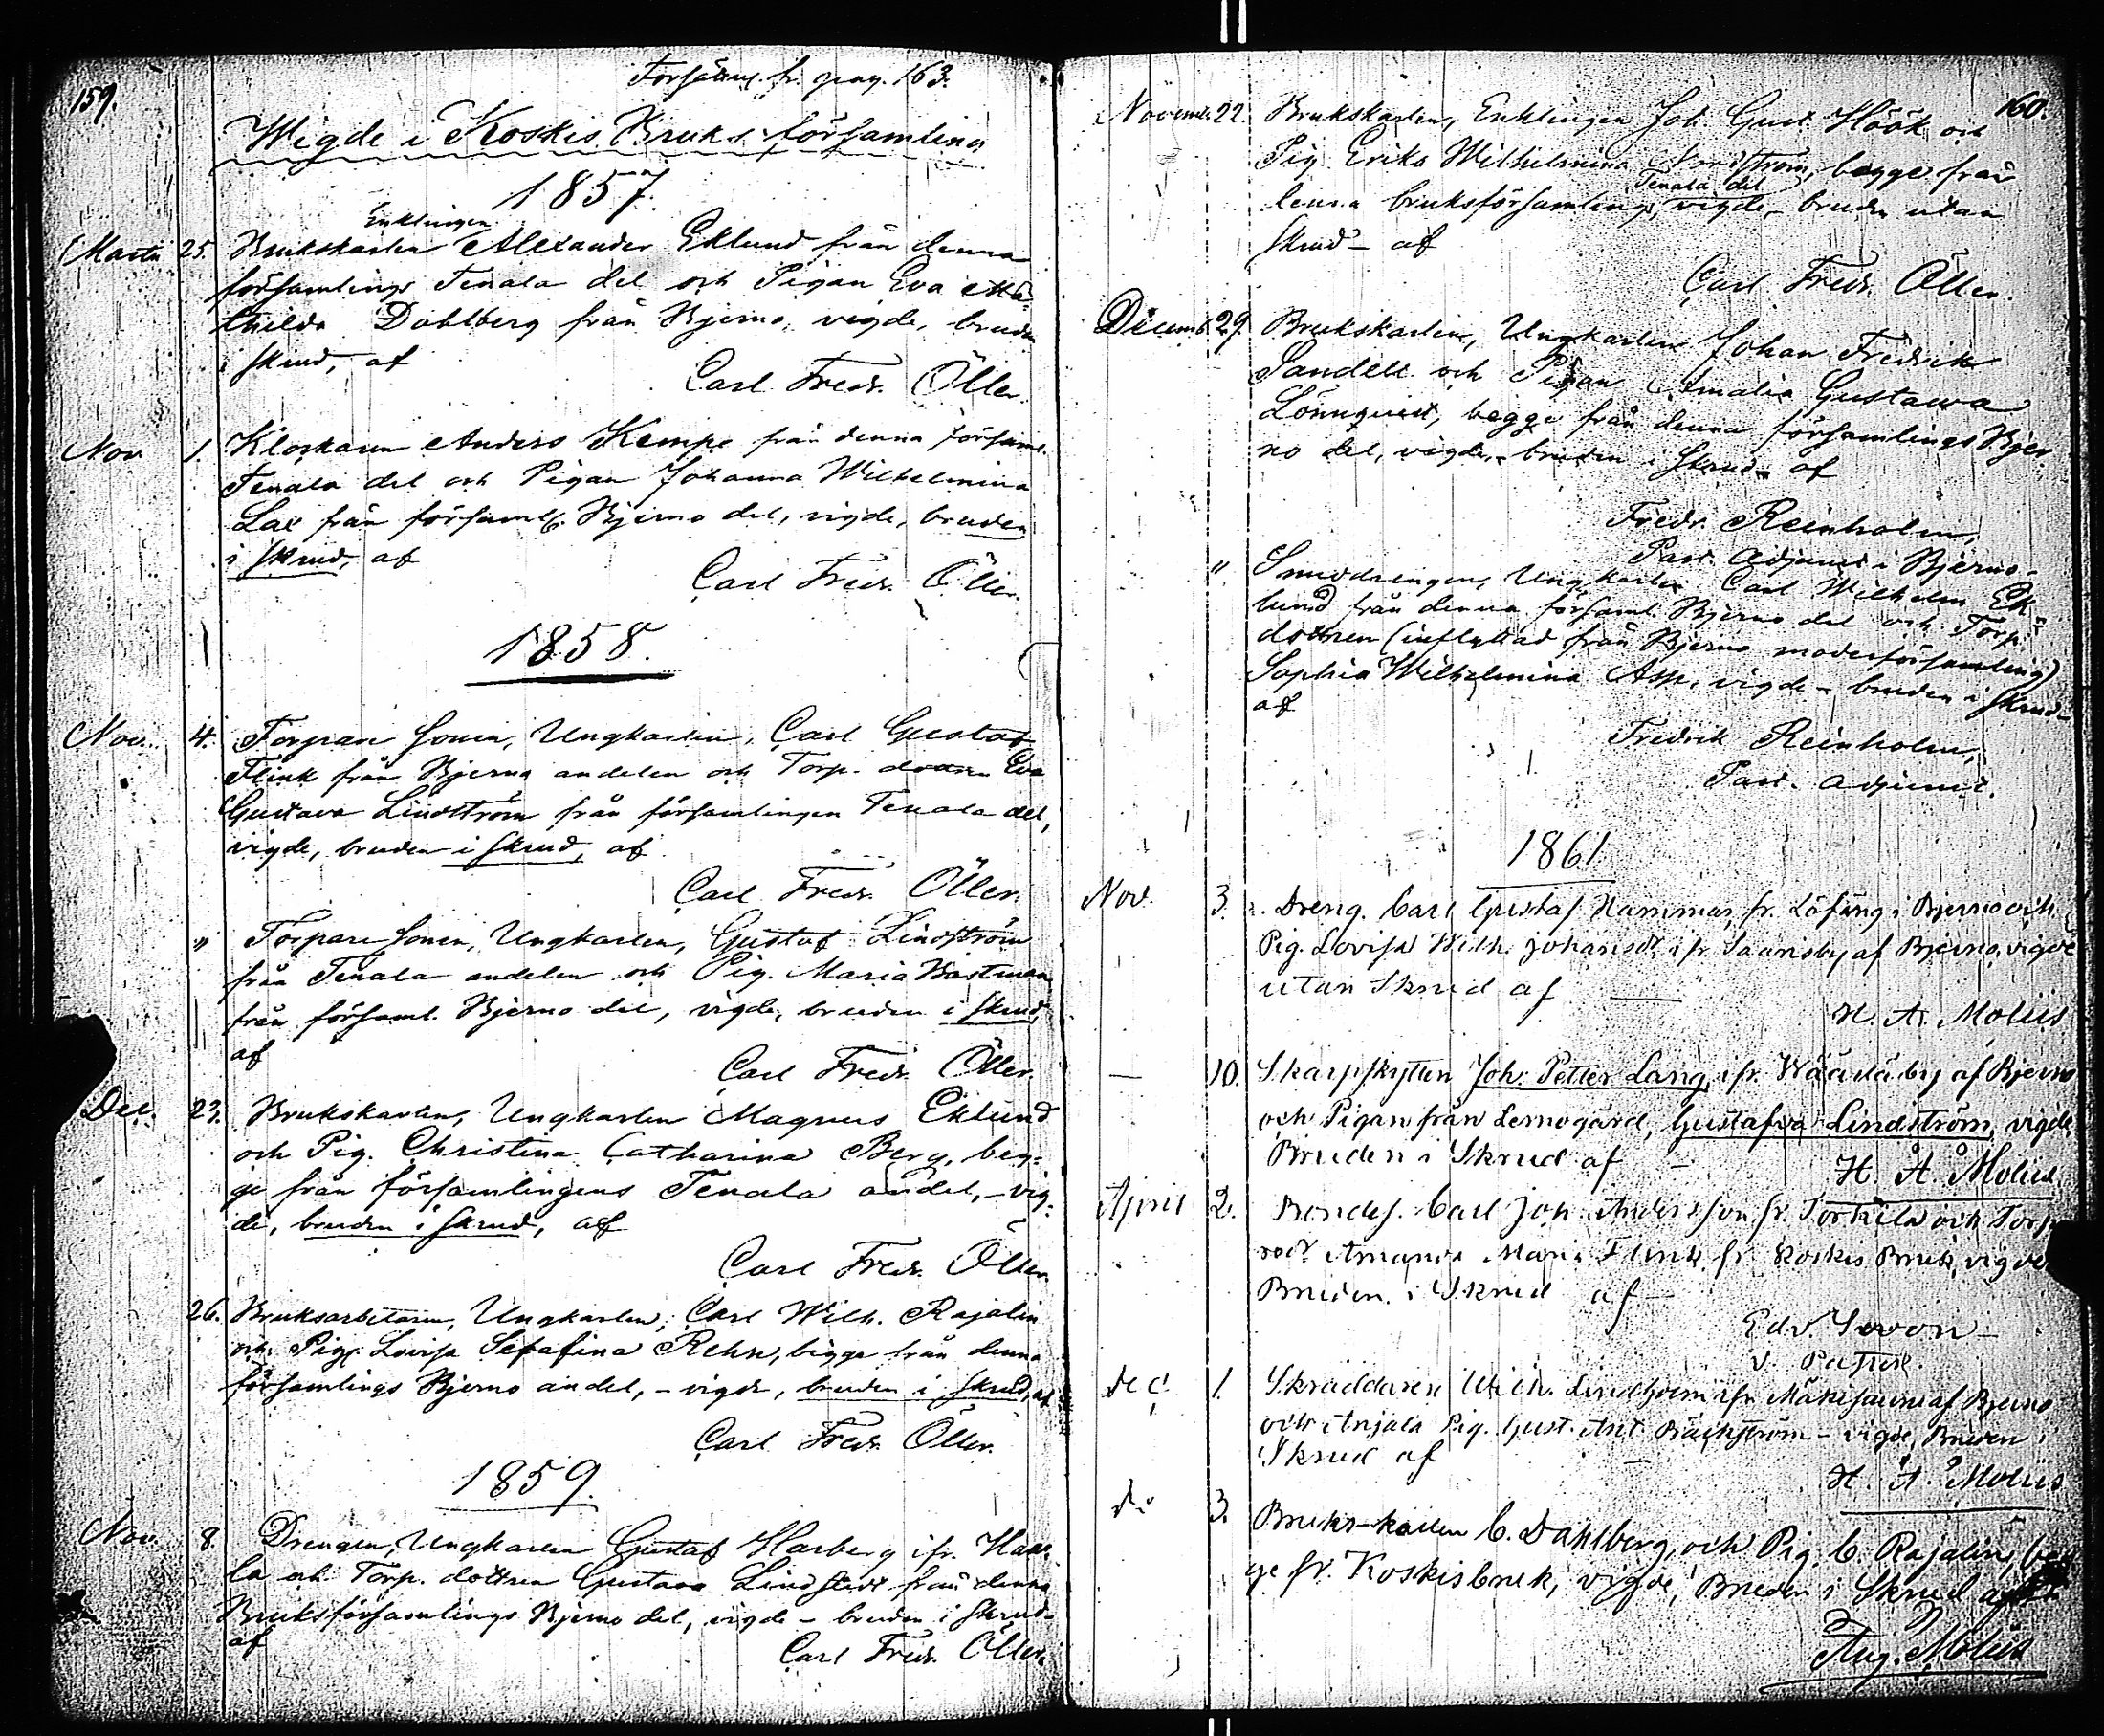 159.
Forsättn. fr. pag. 163.
Wigde i Koskis Bruks församling
1857.
Enklingen
Martii 25. Brukskarlen Alexander Eklund från denna
församlings Tenala del och Pigan Eva Ma-
thilda Dahlberg från Bjerno, vigde, bruden
i skrud, af
Carl Fredr. Öller.
Nov. 1. Klockaren Anders Kempe från denna församl.
Tenala del och Pigan Johanna Wilhelmina
Lax från församlg. Bjerno del, vigde, bruden
i skrud, af
Carl Fredr. Öller.
1858.
Nov. 4. Torpare sonen, Ungkarlen, Carl Gustaf
Flink från Bjerno andelen och Torp. dottren Eva
Gustava Lindström från församlingen Tenala del,
vigde, bruden i skrud, af
Carl Fredr. Öller.
" Torpare sonen, Ungkarlen, Gustaf Lindström
från Tenala andelen och Pig. Maria Wastman
från församl. Bjerno del, vigde, bruden i skrud,
af
Carl Fredr. Öller.
Dec. 23. Brukskarlen, Ungkarlen Magnus Eklund
och Pig. Christina Catharina Berg, beg-
ge från församlingens Tenala andel, - vig-
de, bruden i skrud, af
Carl Fredr. Öller.
26. Bruksarbetaren, Ungkarlen, Carl Wilh. Rajalin
och Pig. Lovisa Sefafina Rehn, begge från denna
församlings Bjerno andel, - vigde, bruden i skrud, af
Carl Fredr. Öller.
1859.
Nov. 8. Drengen, Ungkarlen Gustaf Harberg ifr.
la och Torp. dottren Gustava Lindstedt från denna
Bruksförsamlings Bjerno del, vigde - bruden i skrud -
af
Carl Fredr. Öller.
160.
Novemb. 22. Brukskarlen, Enklingen Joh. Gust. Höök och
Pig. Erika Wilhelmina Nordström, begge från
Tenala del
denna bruksförsamlings, vigde, - bruden utan
skrud - af
Carl Fredr. Öller.
Decemb. 29. Brukskarlen, Ungkarlen Johan Fredrik
Sandell och Pigan Amalia Gustawa
Lönnqvist, begge från denna församlings Bjer-
no del, vigde, - bruden i skrud - af
Fredr. Reinholm,
Past. Adjunct i Bjerno.
" Smedrengen, Ungkarlen Carl Wilhelm Ek-
lund från denna församl. Bjerno del och Torp.
dottren (inflyttad från Bjerno moderförsamling)
Sophia Wilhelmina Asp, vigde - bruden i skrud -
af
Fredrik Reinholm,
Past. Adjunct.
1861.
Nov. 3. Dreng. Carl Gustaf Hammar, fr. Löfäng i Bjerno och
Pig. Lovisa Wilh. Johansdr ifr. Saansby af Bjerno, vigde
utan Skrud af
H. A. Molliis
— 10. Skarpskytten Joh. Petter Lång, ifr. Wäärläby af Bjerno
och Pigan från Lemogård, Gustafva Lindström, vigde
Bruden i Skrud af —
H. A. Moliis
April 2. Bondes. Carl Joh. Andersson fr. Torkila och Torp
Amanda Maria Flink fr. Koskis Bruk, vigde
Bruden i Skrud af —
Edv.
v. Pastor.
dec. 1. Skräddaren Wilh. Lindholm ifr. af Bjerno
och Anjala Pig. Gust. Ant. Bäckström - vigde, Bruden i
Skrud af —
H. A. Moliis
do 3. Bruks-karlen C. Dahlberg, och Pig. C. Rajalin, beg-
ge fr. Koskis bruk, vigde, Bruden i Skrud af
Aug. Moliis